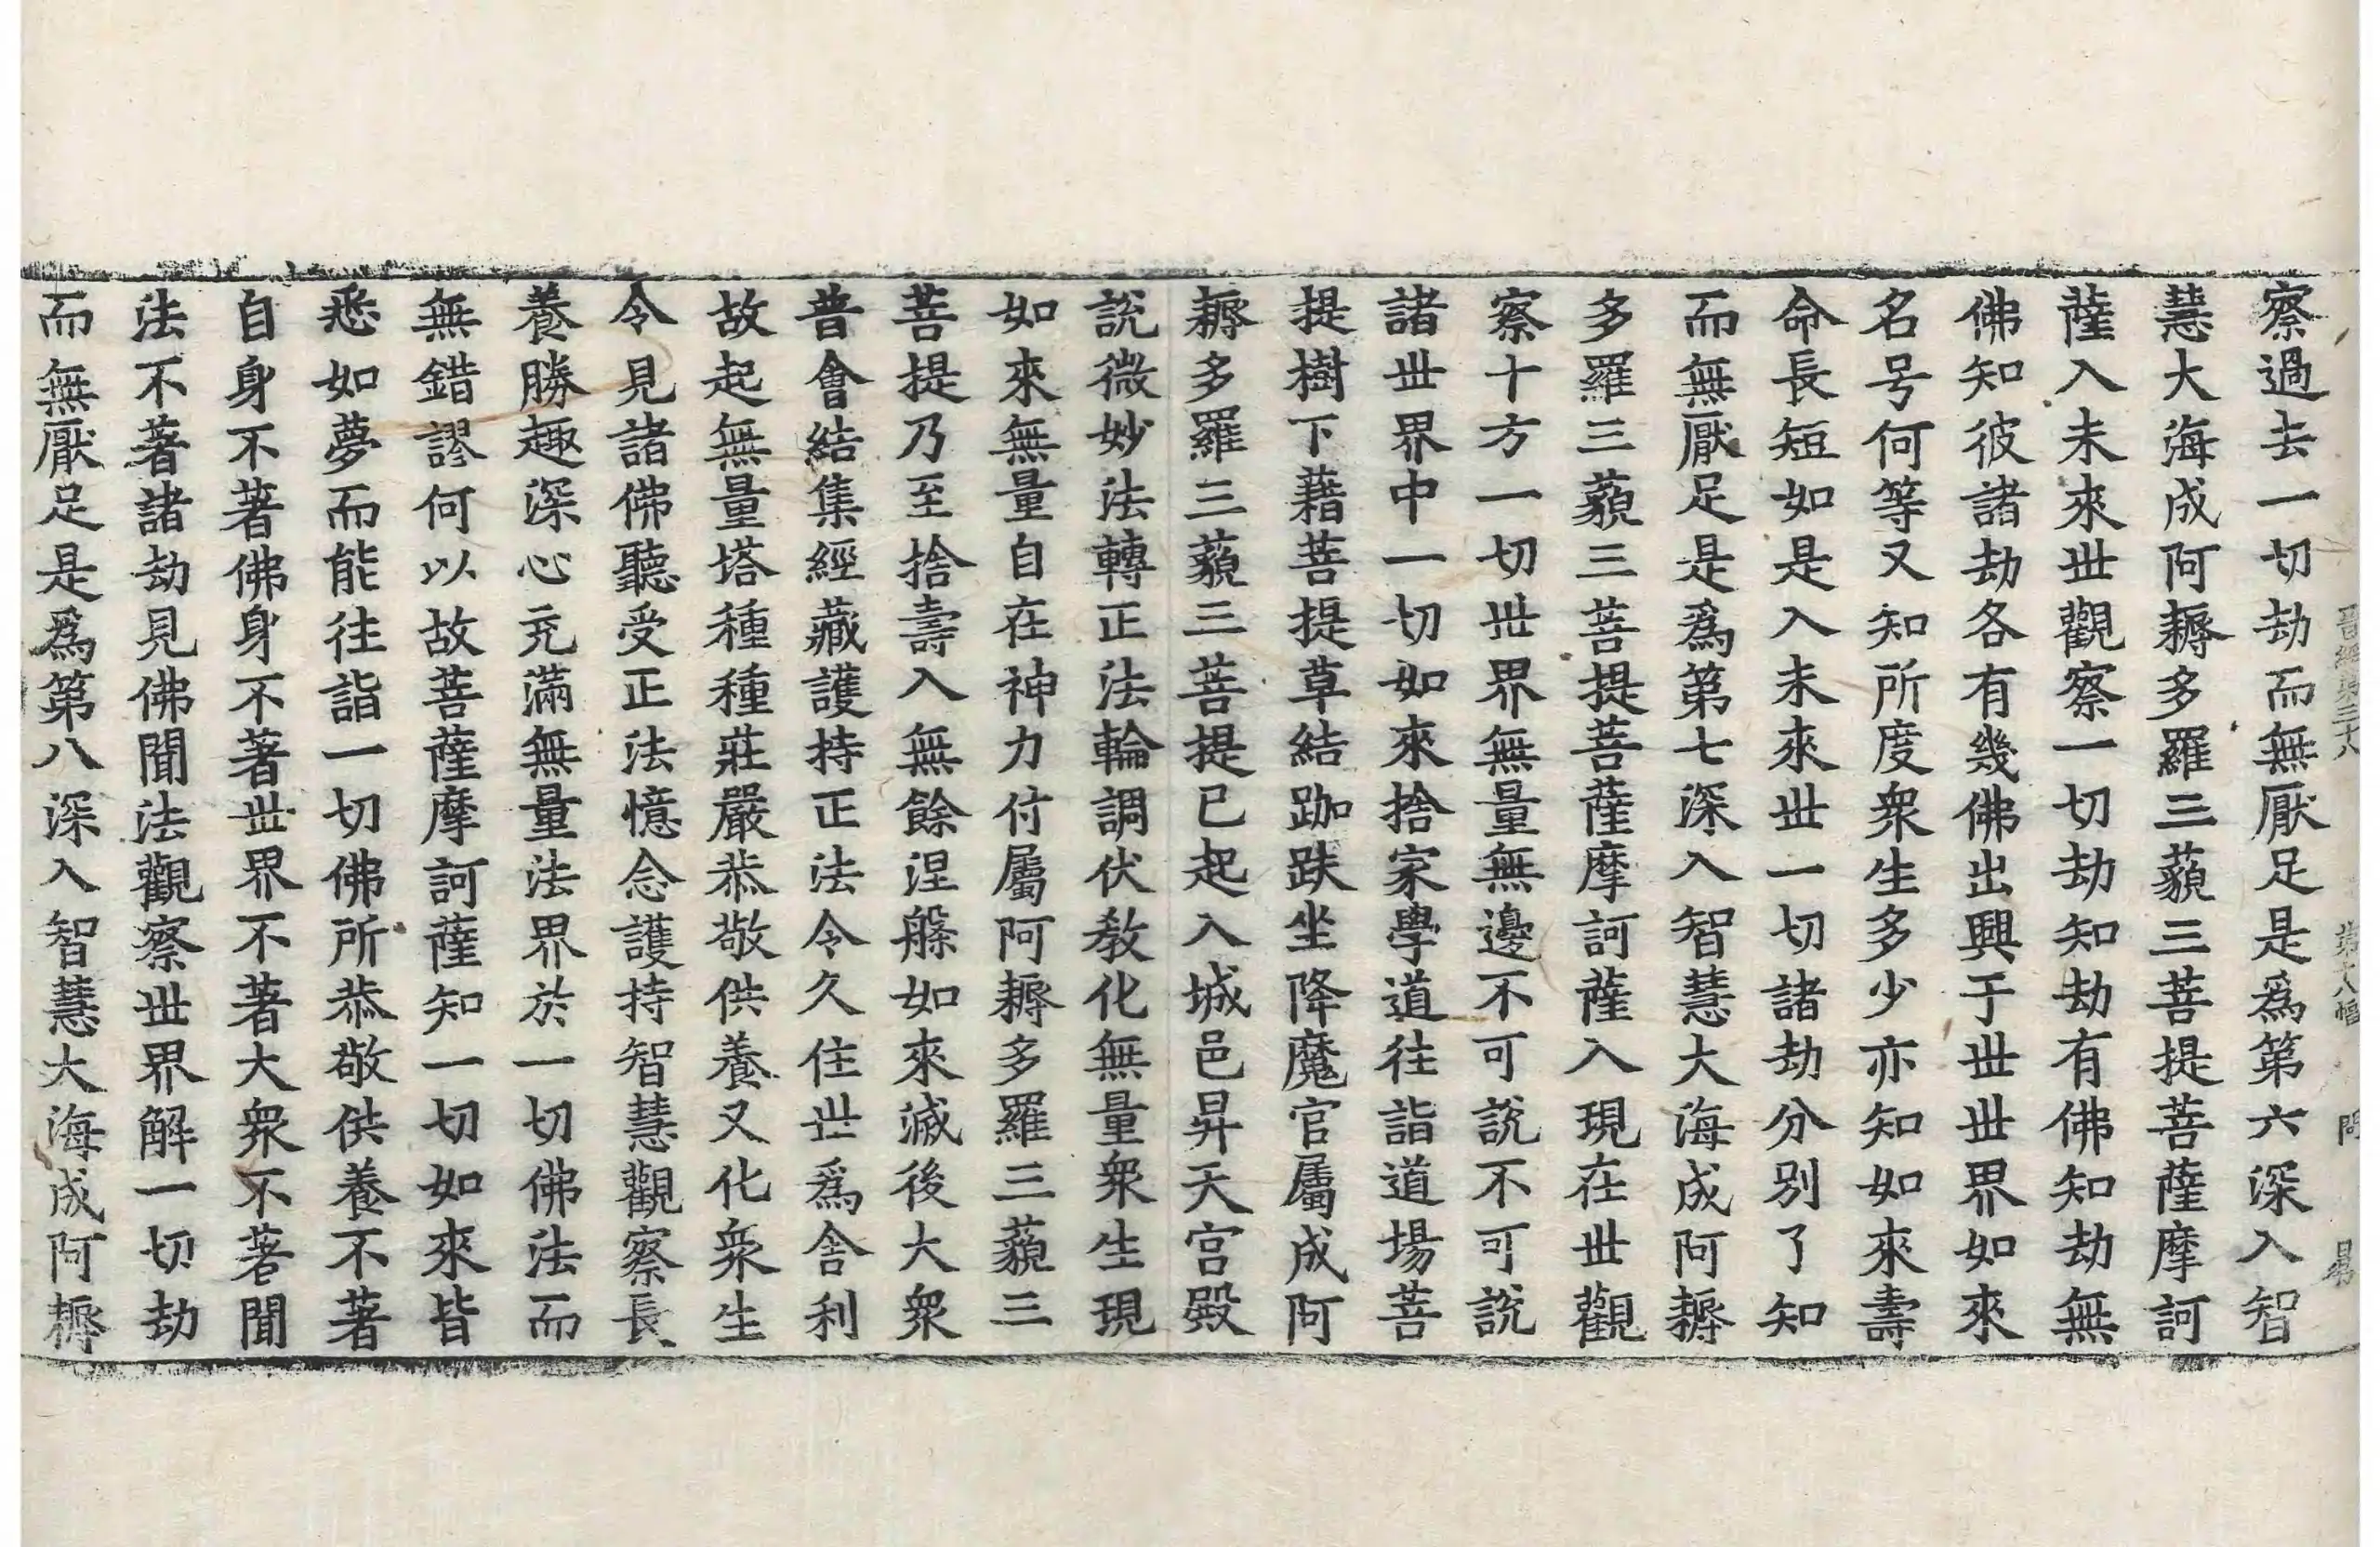 晉經第三十八　第十八幅　問　易
察過去一切劫而無厭足是爲第六深入智
慧大海成阿耨多羅三藐三菩提菩薩摩訶
薩入未來世觀察一切劫知劫有佛知劫無
佛知彼諸劫各有幾佛出興于世世界如來
名号何等又知所度衆生多少亦知如來壽
命長短如是入未來世一切諸劫分別了知
而無厭足是爲第七深入智慧大海成阿耨
多羅三藐三菩提菩薩摩訶薩入現在世觀
察十方一切世界無量無邊不可說不可說
諸世界中一切如來捨家學道往詣道場菩
提樹下藉菩提草結跏趺坐降魔官屬成阿
耨多羅三藐三菩提已起入城邑昇天宮殿
說微妙法轉正法輪調伏教化無量衆生現
如來無量自在神力付屬阿耨多羅三藐三
菩提乃至捨壽入無餘涅槃如來滅後大衆
普會結集經藏護持正法令久住世爲舍利
故起無量塔種種莊嚴恭敬供養又化衆生
令見諸佛聽受正法憶念護持智慧觀察長
養勝趣深心充滿無量法界於一切佛法而
無錯謬何以故菩薩摩訶薩知一切如來皆
悉如夢而能往詣一切佛所恭敬供養不著
自身不著佛身不著世界不著大衆不著聞
法不著諸劫見佛聞法觀察世界解一切劫
而無厭足是爲第八深入智慧大海成阿耨